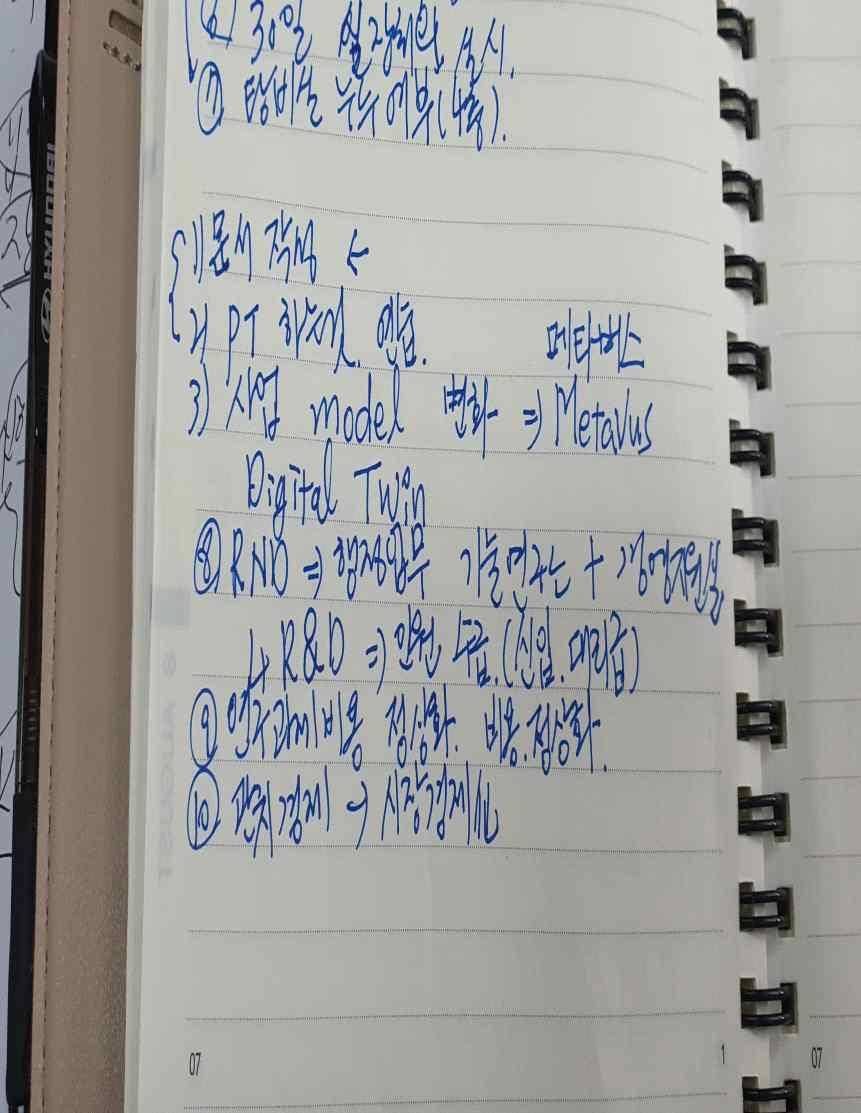 ⑥ 30일 실장회의 실시.
⑦ 탕비실 누수여부(4층).
1) 문서 작성 ←
2) PT 하는것. 연습.
메타버스
3) 사업 model 변화 ⇒ Metavus
Digital Twin
⑧ RND ⇒ 행정업무 기술연구는 + 경영지원실
↳ R&D ⇒ 인원 수급.(신입.대리급)
⑨ 연구과제비용 정상화. 비용.정상화.
⑩ 관치경제 → 시장경제化
HYUNDAI
AUGUST
07
1
07